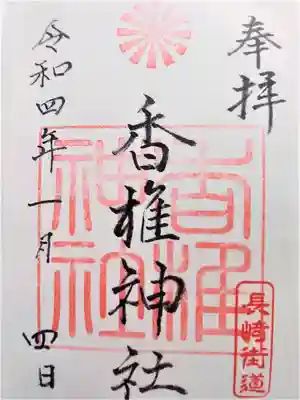 奉拝
香椎神社
香椎
神社
長崎街道
令和四年一月四日